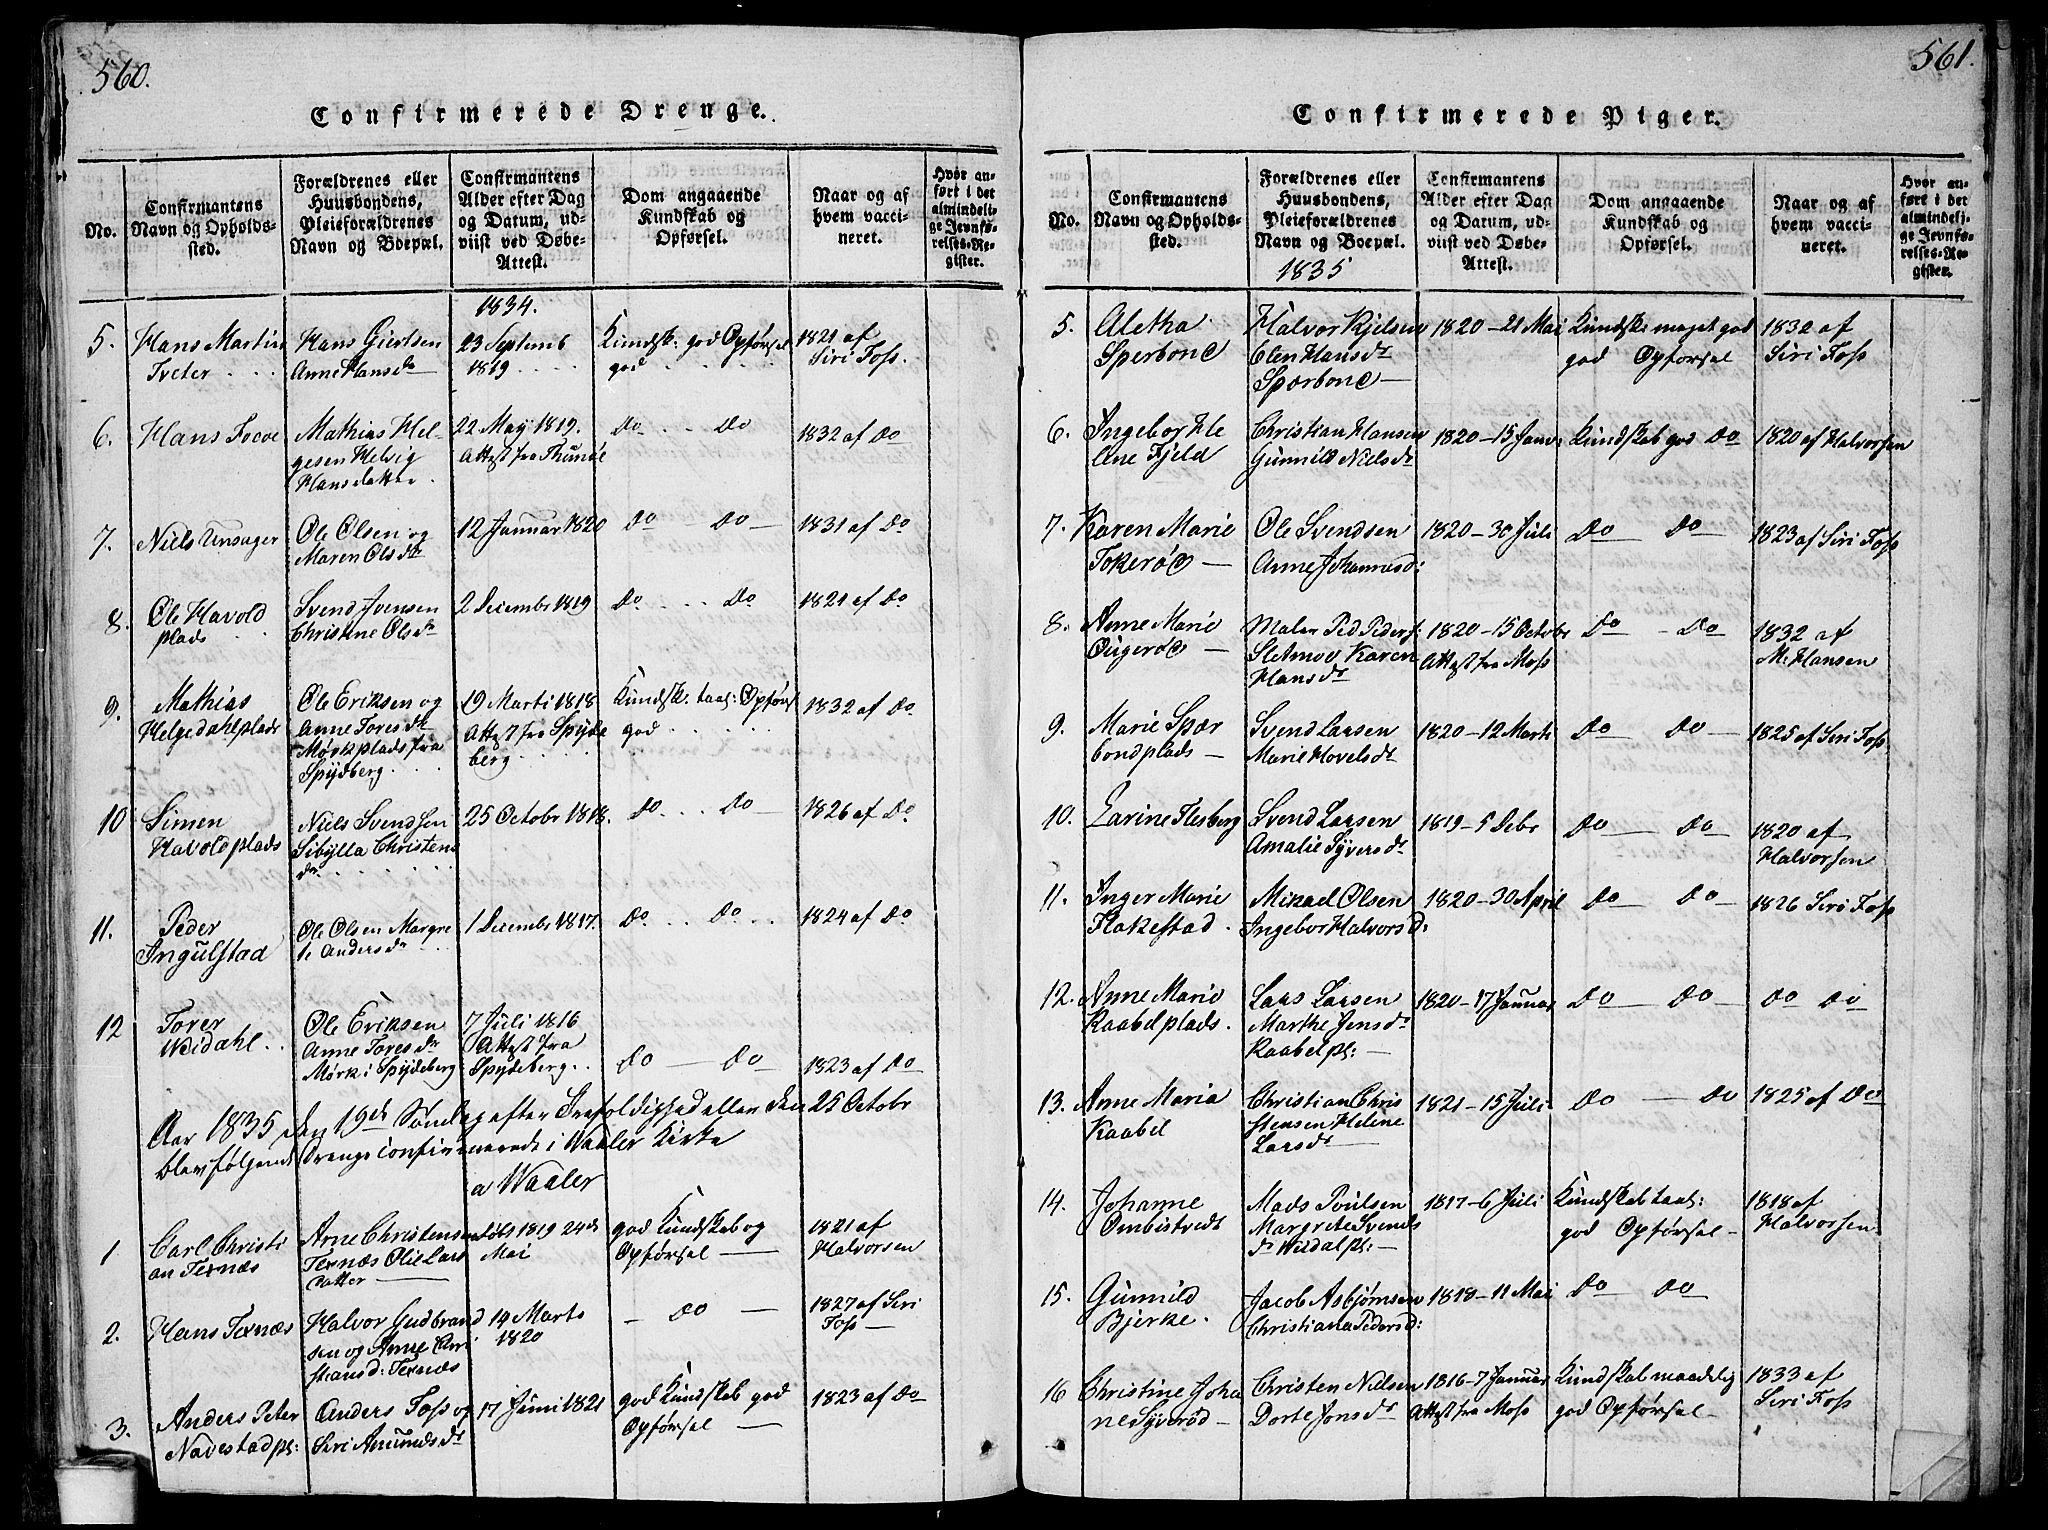 560.
Confirmerede Drenge.
No.
Confirmantens
Navn og Opholds-
sted.
Forældrenes eller
Huusbondens,
Pleieforældrenes
Navn og Boepæl.
Confirmantens
Alder efter Dag
og Datum, ud-
viist ved Døbe-
Attest.
Dom angaaende
Kundskab og
Opførsel.
Naar og af
hvem vacci-
neret.
Hvor an-
ført i det
almindeli-
ge Jevnfø-
relses-Re-
gister.
1834.
5. Hans Martin
Tveter
Hans Giertsen
Anne Hansdr
23 Septemb
1819
Kundsk: god Opførsel
god
1821 af
Siri Foss.
6. Hans Foeve
Mathias Hel-
gesen Helvig
Hansdatter.
22 Maj 1819.
Attest fra Thunøe
Do Do
1832 af Do
7. Niels Unsager
Ole Olsen og
Maren Olsdr
12 Januar 1820
Do Do
1831 af Do
8. Ole Havold
plads
Svend Jvensen
Christine Olsdr
2 Decembr 1819
Do Do
1821 af Do
9. Mathias
Helgedahlplads
Ole Eriksen og
Anne Toresdr
Mørkplads fra
Spydberg
19 Marti 1818
Attest fra Spyde
berg
Kundsk: taal: Opførs
god
1832 af Do
10 Simen
Havoldplads
Niels Svendsen
Sibylla Christens
dr
25 Octobr 1818.
Do Do
1826 af Do
11. Peder
Ingulstad
Ole Olsen Margre
te Andersdr
1 Decembr 1817.
Do Do
1824 af Do
12 Torer
Weidahl.
Ole Eriksen
Anne Toresdr
Mørk i Spydeberg
7 Juli 1816
Attest fra
Spydeberg
Do Do
1823 af Do
Aar 1835 den 19de Søndag efter Trefoldighed eller den 25 Octobr
blev følgende Drenge confirmerede i Waaler Kirke
a Waaler
1 Carl Christi
an Texnæs
Arne Christensen
Texnæs Olie Lars
datter
døbt 1819 24de
Mai
god Kundskab og
Opførsel
1821 af
Halvorsen
2. Hans Texnæs
Halvor Gudbrand
sen og Anne Chri
stiansd: Texnæs
19 Marts
1820
Do
1827 af Siri
Foss
3. Anders Peter
Navestadpl:
Anders Foss og
Siri Amundsdr
17 Juni 1821
god Kundskab god
Opførsel
1823 af Do
561.
Confirmerede Piger.
No.
Confirmantens
Navn og Opholds-
sted.
Forældrenes eller
Huusbondens,
Pleieforældrenes
Navn og Boepæl.
Confirmantens
Alder efter Dag
og Datum, ud-
viist ved Døbe-
Attest.
Dom angaaende
Kundskab og
Opførsel.
Naar og af
hvem vacci-
neret.
Hvor an-
ført i det
almindeli-
ge Jevnfø-
relses-Re-
gister.
1835
5. Aletha
Sperbond
Halvor Kjelsen
Elen Hansdr
Spærbond
1820 - 21 Mai
Kundsk: meget god
god Opførsel
1832 af
Siri Foss
6. Ingebor He
lene Fjeld
Christian Hansen
Gunnild Nielsdr
1820 - 15 Janv:
Kundskab god Do
1820 af Halvorsen
7. Karen Marie
Tokerød
Ole Svendsen
Anne Johannesd:
1820 - 30 Juli
Do Do
1823 af Siri Foss
8. Anne Marie
Augerød
Maler Ped Peders:
Sletmoe Karen
Hansdr
1820 - 15 Octobr
Attest fra Moss
Do - Do
1832 af
M: Hansen
9. Marie Spær
bondplads
Svend Larsen
Marie Hovelsdr
1820 - 12 Marti
Do Do
1825 af Siri Foss
10. Larine Flesberg
Svend Larsen
Amalie Syversdr
1819 - 5 Debr
Do Do
1820 af
Halvorsen
11. Inger Marie
Flakestad.
Mikael Olsen
Ingebor Halvorsd:
1820 - 30 April
Do Do
1826 Siri Foss
12. Anne Marie
Kaabelplads.
Lars Larsen
Marthe Jensdr
Kaabelpl:
1820 - 17 Januar
Do Do
Do Do
13. Anne Maria
Kaabel
Christian Chris
stensen Helene
Larsdr
1821 - 15 Juli
Do Do
1825 af Do
14. Johanne
Ombistvedt
Mads Poulsen
Margrete Svends
dr Widalpl:
1817 - 6 Juli
Kundskab taal:
god Opførsel
1818 af
Halvorsen
15. Gunnild
Bjerke.
Jacob Asbjørnsen
Christiana Pedersd:
1818 - 11 Mai
Do Do
16 Christine Joha
ne Syverød
Christen Nielsen
Dorte Jonsdr
1816 - 7 Januar
Attest fra Moss
Kundskab maadelig
god Opførsel
1833 af
Siri Foss